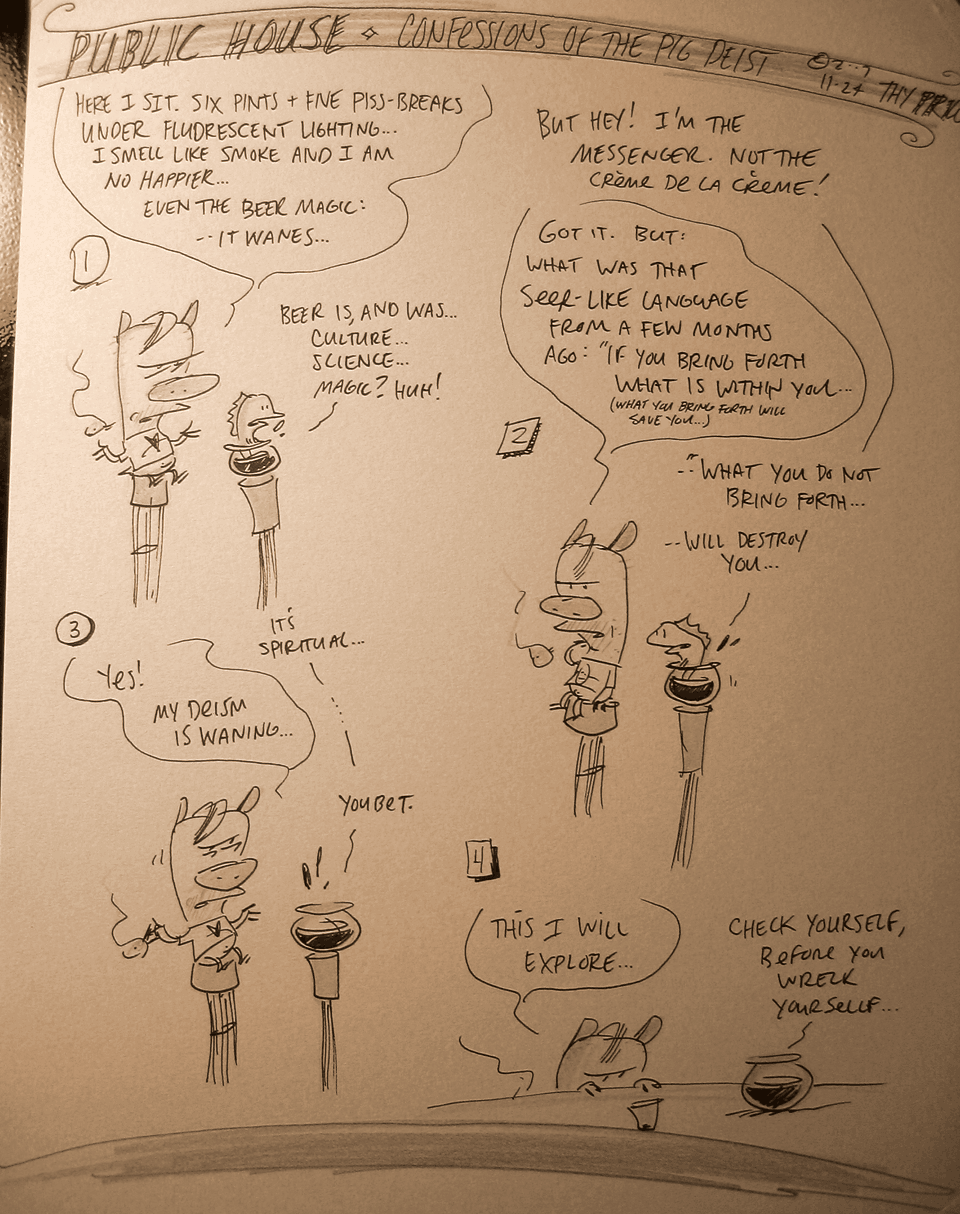 PUBLIC HOUSE ⋄ CONFESSIONS OF THE PIG DEIST
11-24 THY
HERE I SIT. SIX PINTS + FIVE PISS-BREAKS
UNDER FLUORESCENT LIGHTING...
I SMELL LIKE SMOKE AND I AM
NO HAPPIER...
EVEN THE BEER MAGIC:
-- IT WANES...
1
BEER IS, AND WAS...
CULTURE...
SCIENCE...
MAGIC? HUH!
BUT HEY! I'M THE
MESSENGER. NOT THE
CRÈME DE LA CRÈME!
GOT IT. BUT:
WHAT WAS THAT
SEER-LIKE LANGUAGE
FROM A FEW MONTHS
AGO: "IF YOU BRING FORTH
WHAT IS WITHIN YOU...
(WHAT YOU BRING FORTH WILL
SAVE YOU...)
2
--"WHAT YOU DO NOT
BRING FORTH...
--WILL DESTROY
YOU...
3
IT'S
SPIRITUAL...
Yes!
MY DEISM
IS WANING...
YOU BET.
4
THIS I WILL
EXPLORE...
CHECK YOURSELF,
BEFORE YOU
WRECK
YOURSELF...